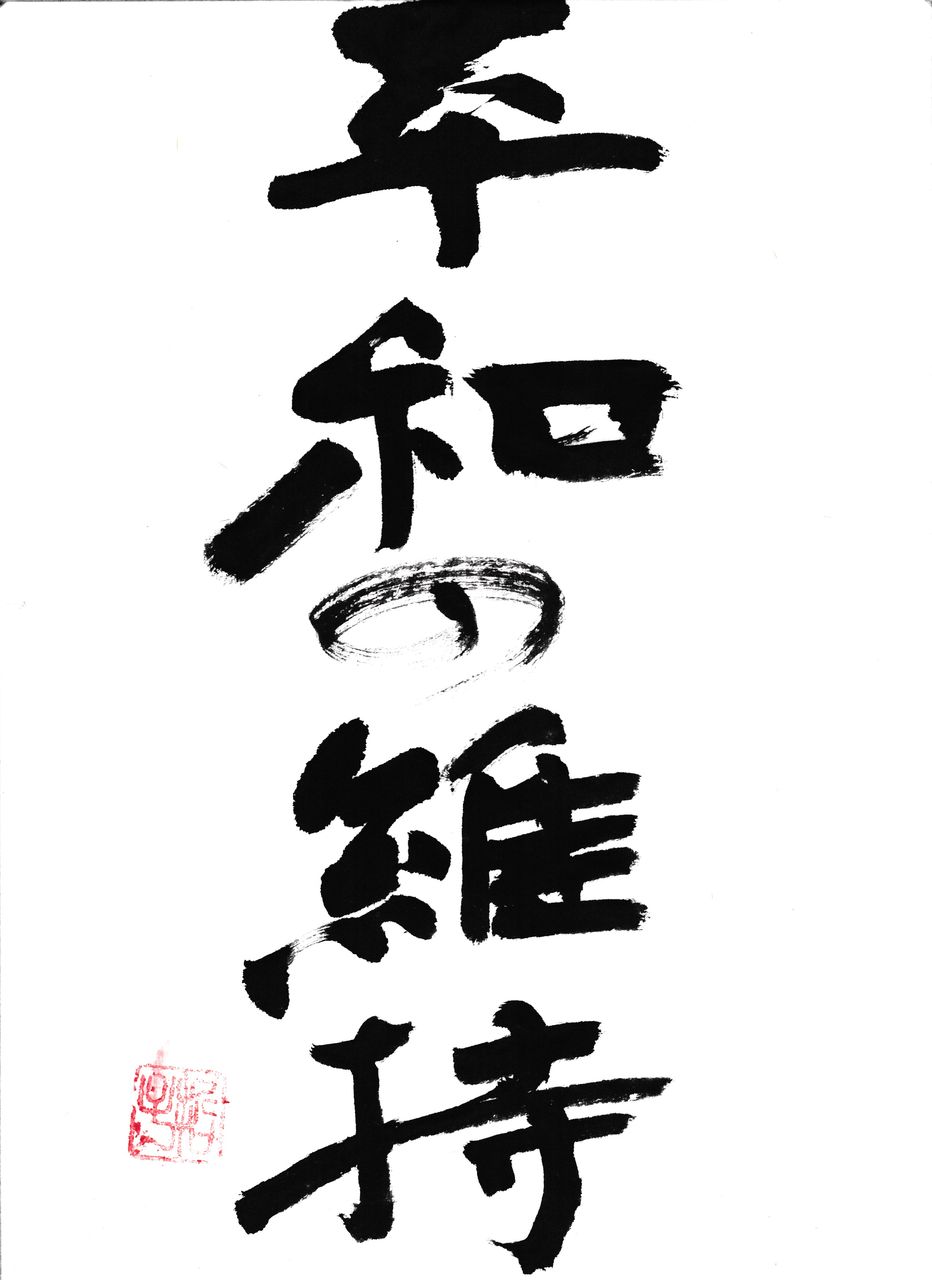 平和の維持